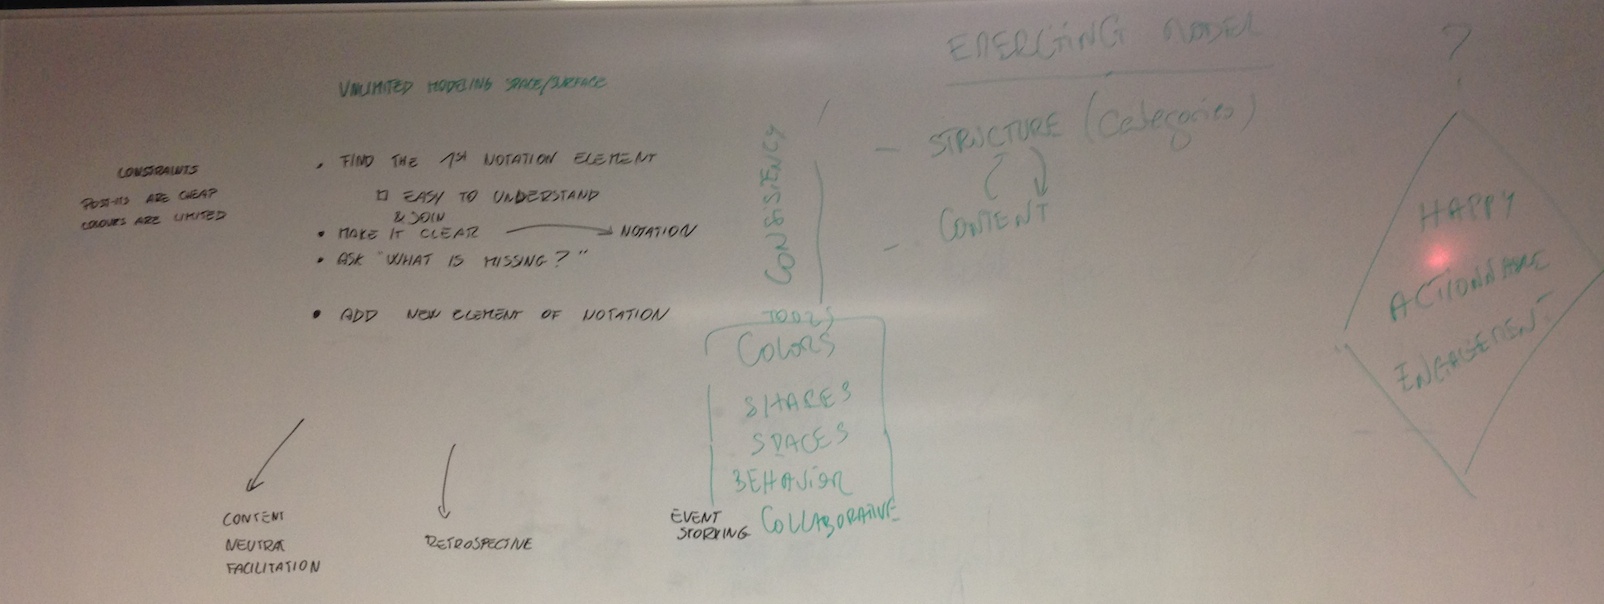 UNLIMITED MODELING SPACE/SURFACE
CONSTRAINTS
POST-ITS ARE CHEAP
COLOURS ARE LIMITED
• FIND THE 1ST NOTATION ELEMENT
EASY TO UNDERSTAND
& JOIN
• MAKE IT CLEAR → NOTATION
• ASK "WHAT IS MISSING?"
• ADD NEW ELEMENT OF NOTATION
CONTENT
NEUTRAL
FACILITATION
RETROSPECTIVE
EVENT
STORMING
CONSISTENCY
TOOLS
COLORS
SHAPES
SPACES
BEHAVIOR
COLLABORATIVE
EMERGING MODEL
- STRUCTURE (Categories)
- CONTENT
?
HAPPY
ACTIONNABLE
ENGAGEMENT